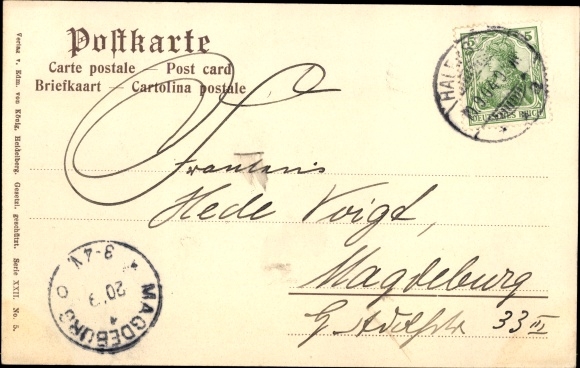 Postkarte
Carte postale — Post card
Briefkaart — Cartolina postale
5 5
DEUTSCHES REICH
HALLE
Fräulein
Hede Voigt,
Magdeburg
G. Adolfstr. 33 III
MAGDEBURG
3-4 N.
20 3
Verlag v. Edm. von König, Heidelberg. Gesetzl. geschützt. Serie XXII. No. 5.